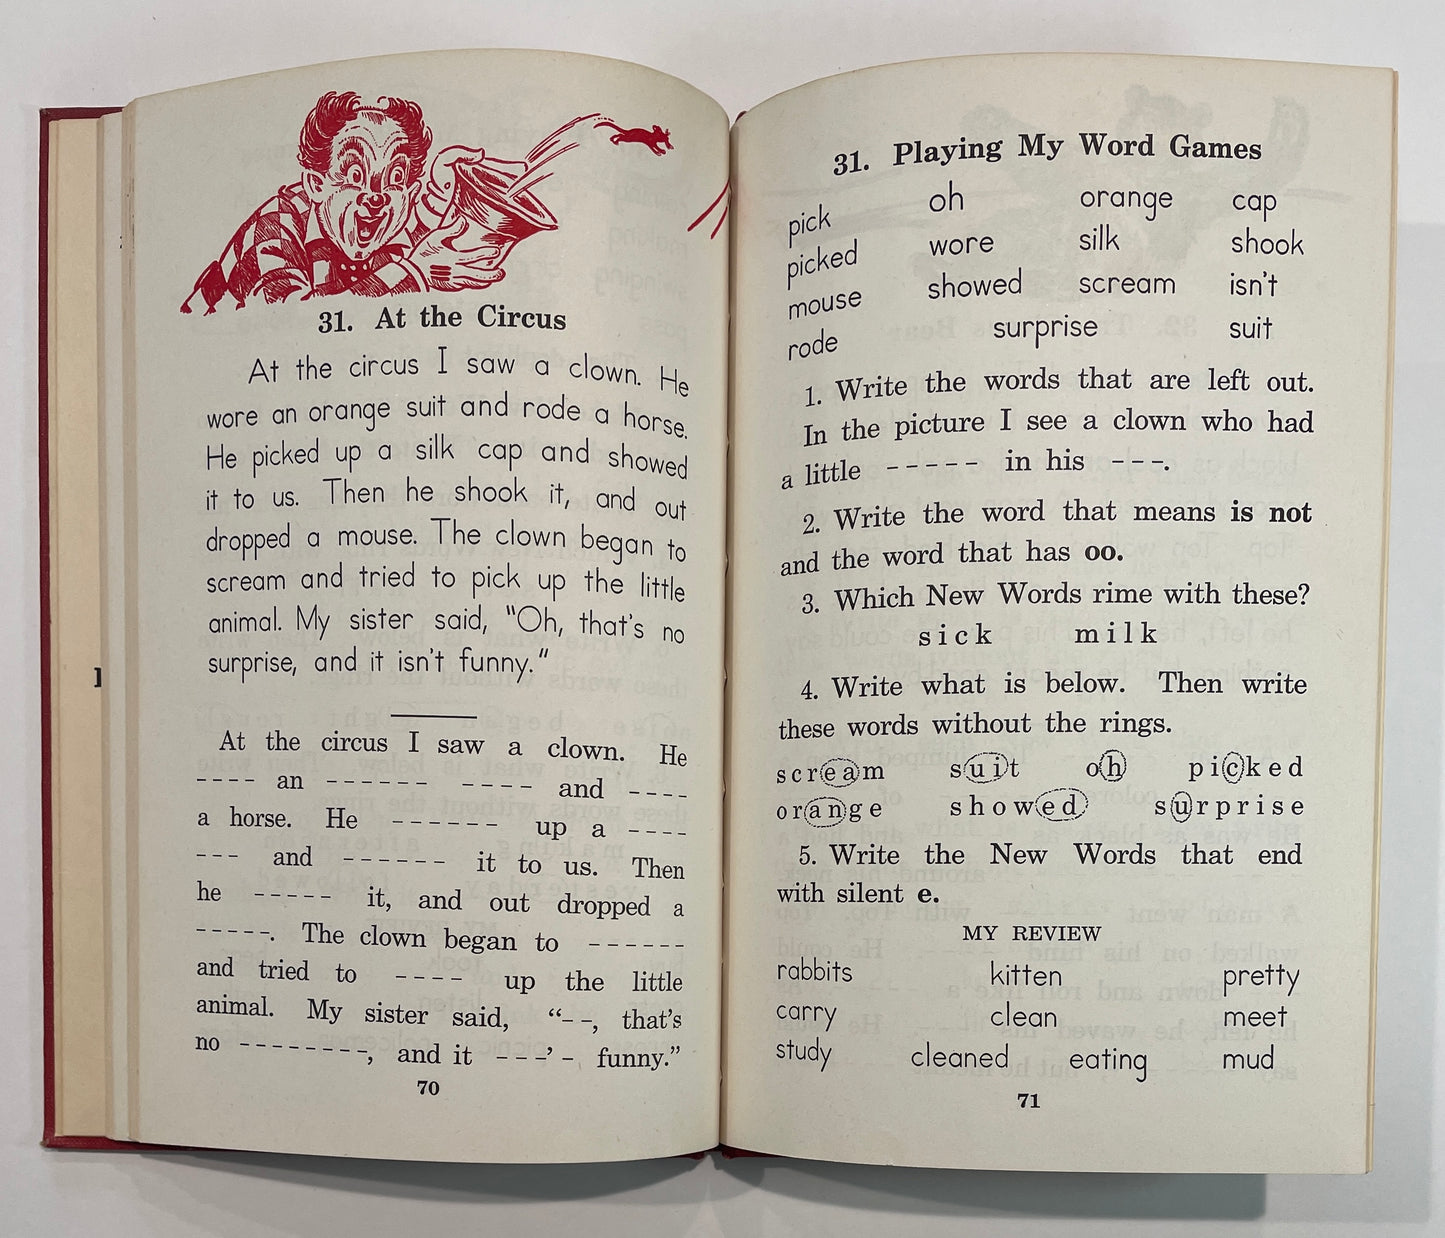 31. At the Circus
At the circus I saw a clown. He
wore an orange suit and rode a horse.
He picked up a silk cap and showed
it to us. Then he shook it, and out
dropped a mouse. The clown began to
scream and tried to pick up the little
animal. My sister said, "Oh, that's no
surprise, and it isn't funny."
At the circus I saw a clown. He
---- an ------ ---- and ----
a horse. He ------ up a ----
--- and ------ it to us. Then
he ----- it, and out dropped a
-----. The clown began to ------
and tried to ---- up the little
animal. My sister said, “--, that's
no --------, and it ---’- funny.”
70
31. Playing My Word Games
pick oh orange cap
picked wore silk shook
mouse showed scream isn't
rode surprise suit
1. Write the words that are left out.
In the picture I see a clown who had
a little ----- in his ---.
2. Write the word that means is not
and the word that has oo.
3. Which New Words rime with these?
sick milk
4. Write what is below. Then write
these words without the rings.
scream suit oh picked
orange showed surprise
5. Write the New Words that end
with silent e.
MY REVIEW
rabbits kitten pretty
carry clean meet
study cleaned eating mud
71